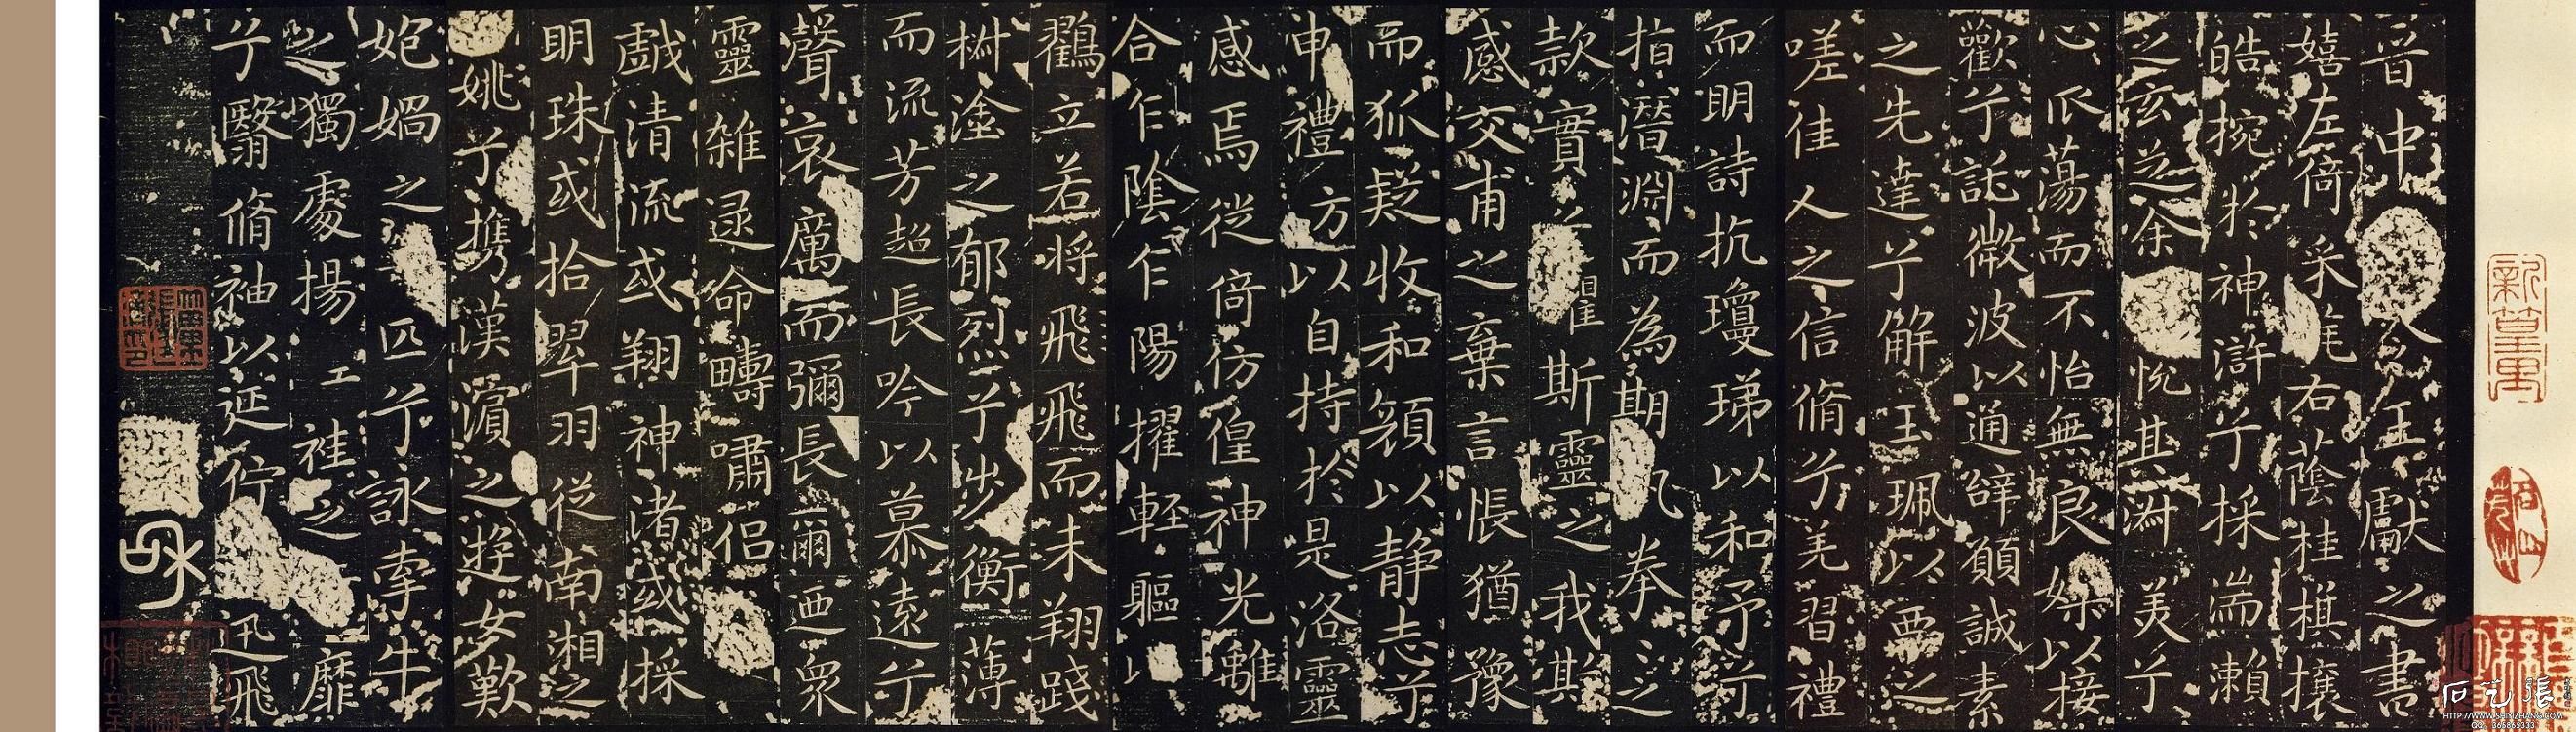 晉中令王獻之書
嬉左倚采旄右蔭桂棋攘
皓捥於神滸兮採湍瀬
之玄芝余悅其淑美兮
心爪蕩而不怡無良媒以接
歡兮託微波以通辭願誠素
之先達兮解玉珮以要之
嗟佳人之信脩兮羌習禮
而明詩抗瓊珶以和予兮
指潛淵而為期拳之
款實兮懼斯靈之我欺
感交甫之棄言悵猶豫
而狐疑收和顏以静志兮
申禮方以自持於是洛靈
感焉徙倚彷徨神光離
合乍陰乍陽擢輕軀以
鶴立若將飛飛而未翔踐
椒塗之郁烈兮步衡薄
而流芳超長吟以慕遠兮
聲哀厲而彌長爾迺衆
靈雜遝命疇嘯侶
戯清流或翔神渚或採
明珠或拾翠羽從南湘之
姚兮攜漢濱之遊女歎
匏媧之無匹兮詠牽牛
之獨處揚袿之靡
兮翳脩袖以延佇迅飛
HTTP://WWW.SHIYIZHANG.COM